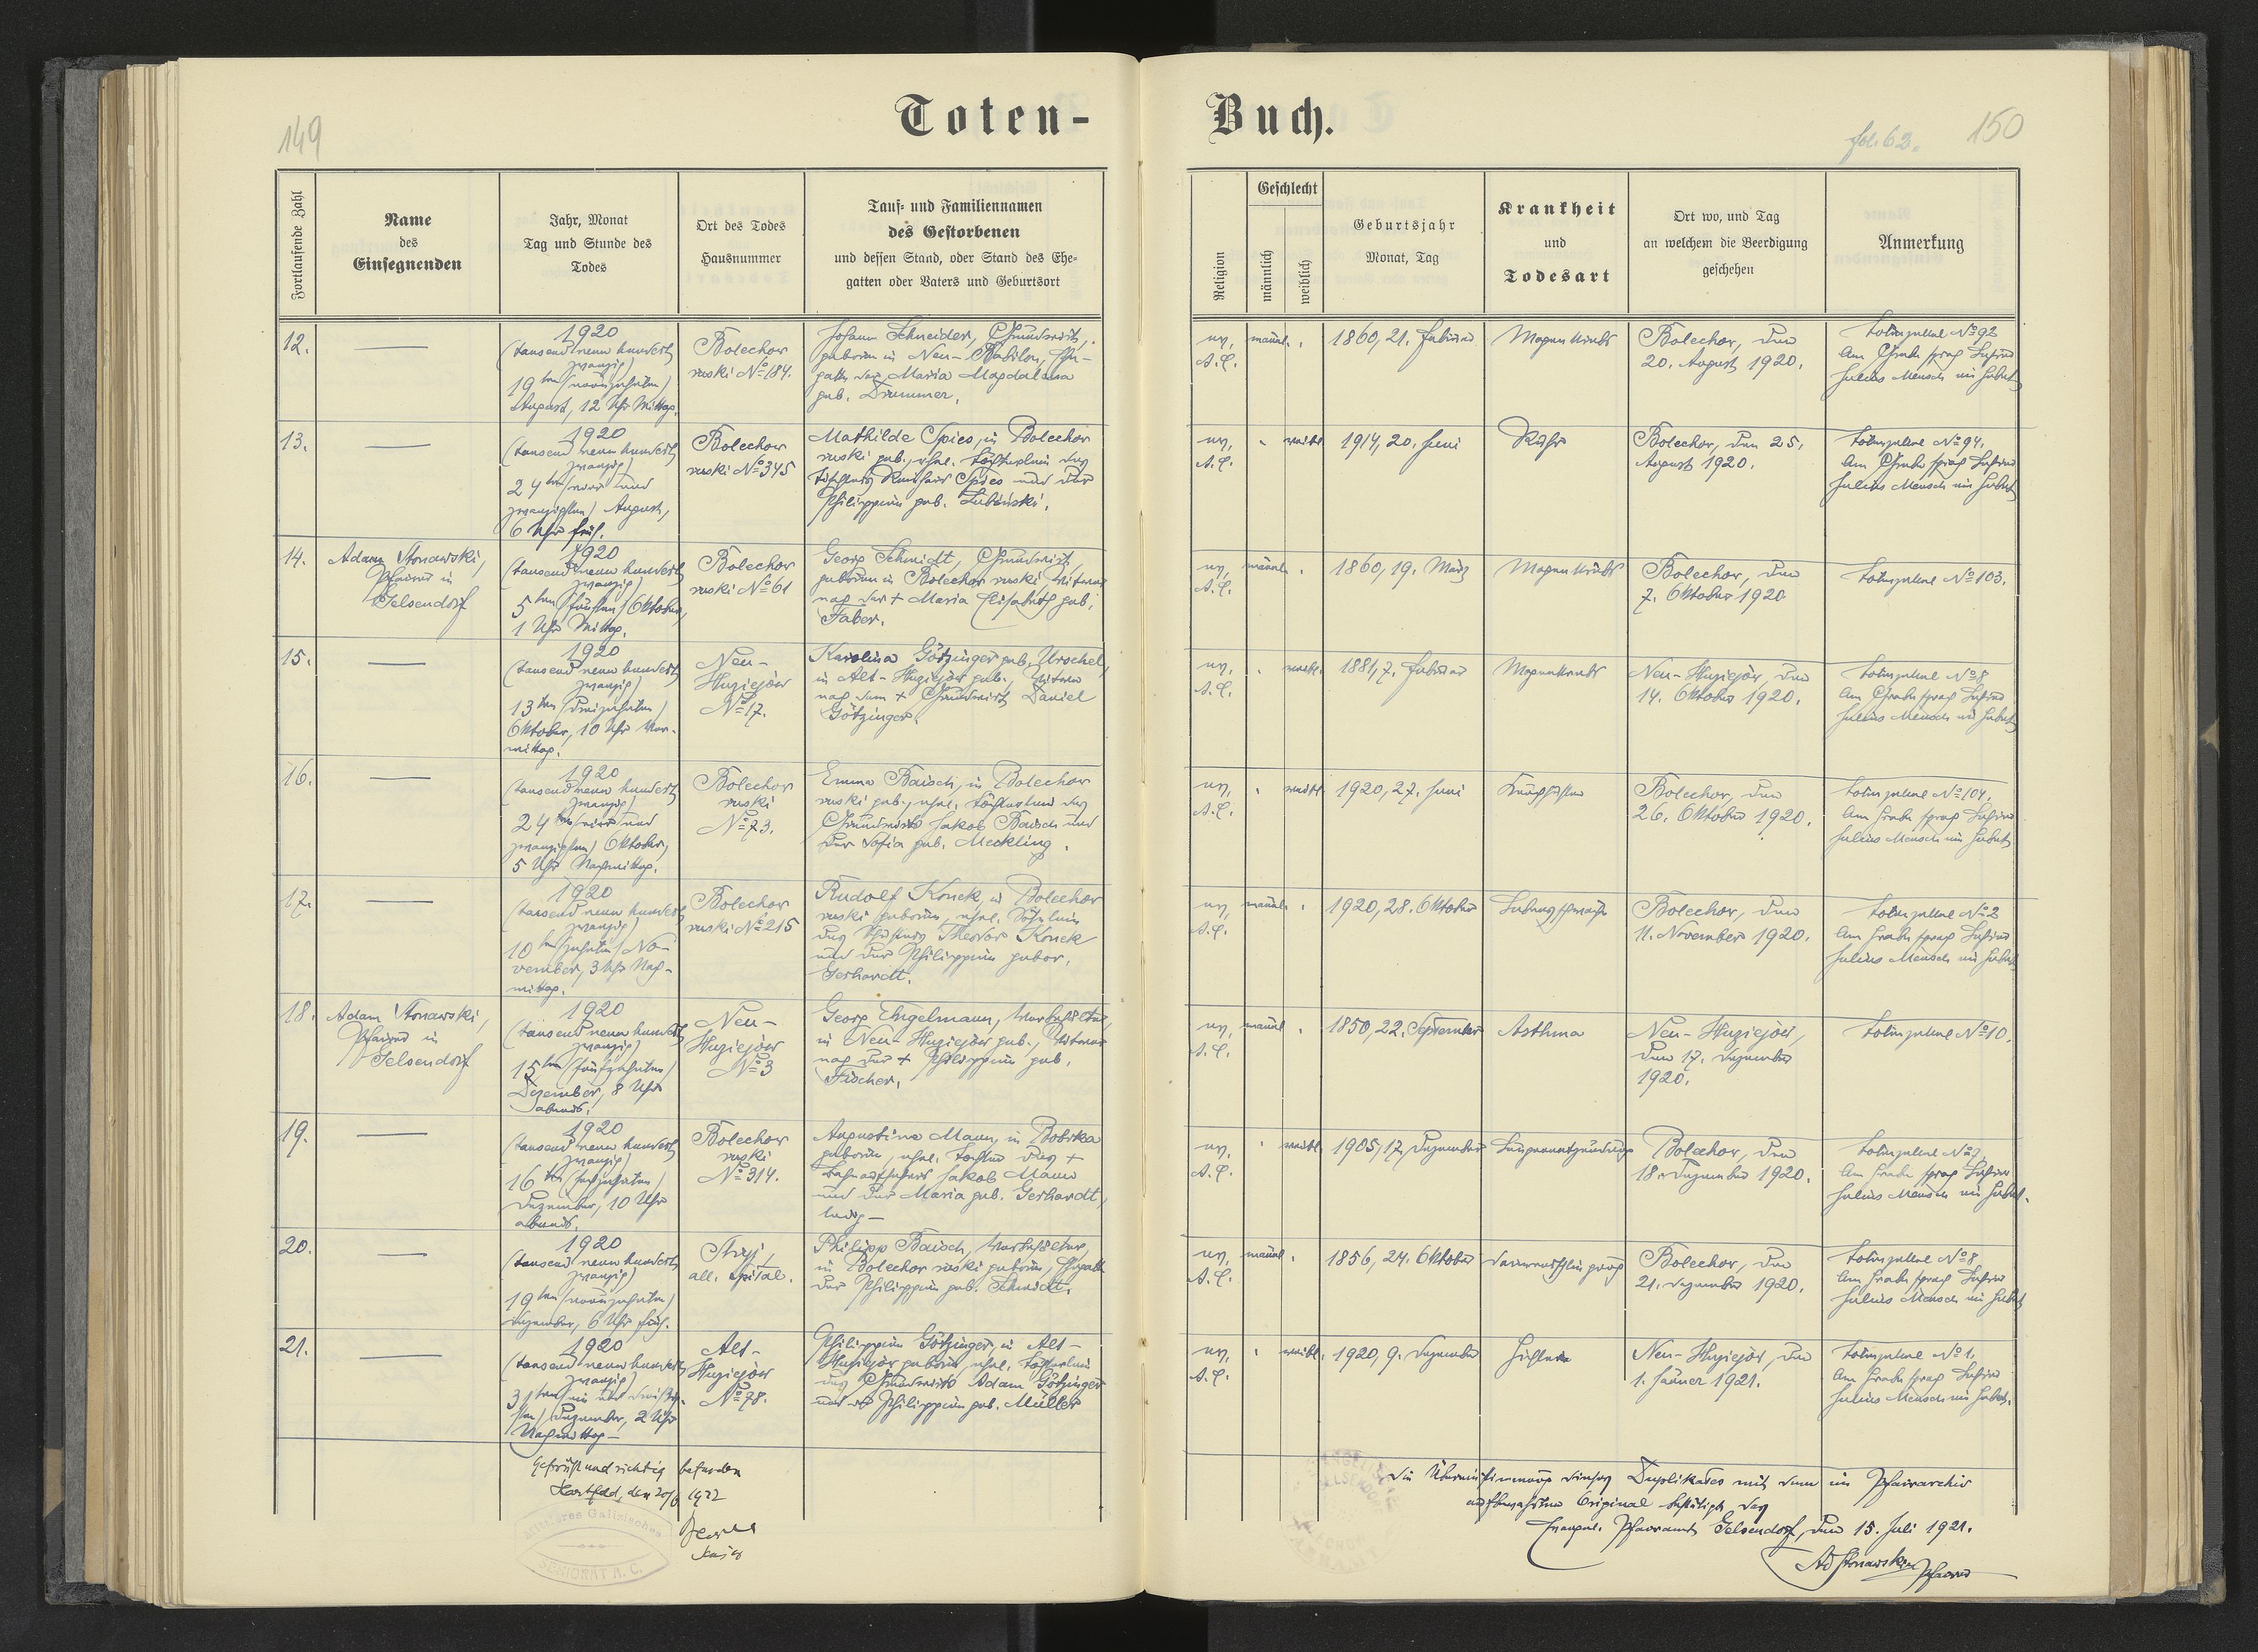 149
Toten-
Fortlaufende Zahl
Name
des
Einsegnenden
Jahr, Monat
Tag und Stunde des
Todes
Ort des Todes
Hausnummer
Tauf- und Familiennamen
des Gestorbenen
und dessen Stand, oder Stand des Ehe-
gatten oder Vaters und Geburtsort
12.
1920
(tausend neun hundert
zwanzig)
19ten (neunzehnten)
August, 12 Uhr Mittag.
Bolechow
ruski No 184.
Johann Schneider, Grundwirt,
geboren in Neu-Babilon, Ehe-
gatte der Maria Magdalena
geb. Drummer.
13.
1920
(tausend neun hundert
zwanzig)
24ten (vier und
zwanzigsten) August,
6 Uhr früh.
Bolechow
ruski No 345
Mathilde Spies, in Bolechow
ruski geb., ehel. Töchterlein des
Tischlers Spies und der
Philippine geb. Lubinski.
14.
Adam Stonawski,
Pfarrer in
Gelsendorf
1920
(tausend neun hundert
zwanzig)
5ten (fünften) Oktober,
1 Uhr Mittag.
Bolechow
ruski No 61
Georg Schmidt, Grundwirt,
geboren in Bolechow ruski, Witwer
nach der + Maria Elisabeth geb.
Faber.
15.
1920
(tausend neun hundert
zwanzig)
13ten (dreizehnten)
Oktober, 10 Uhr Vor-
mittag.
Neu-
Huziejów
No 17.
Karolina Götzinger geb. Urschel,
in Alt-Huziejów geb., Witwe
nach dem + Grundwirt Daniel
Götzinger.
16.
1920
(tausend neun hundert
zwanzig)
24ten (vier und
zwanzigsten) Oktober,
5 Uhr Nachmittag.
Bolechow
ruski
No 73.
Emma Baisch, in Bolechow
ruski geb., ehel. Töchterlein des
Grundwirts Jakob Baisch und
der Sofia geb. Meckling.
17.
1920
(tausend neun hundert
zwanzig)
10ten (zehnten) No-
vember, 3 Uhr Nach-
mittag.
Bolechow
ruski No 215
Rudolf Konek, in Bolechow
ruski geboren, ehel. Söhnlein
des Theodor Konek
und der Philippine gebor.
Gerhardt.
18.
Adam Stonawski,
Pfarrer in
Gelsendorf
1920
(tausend neun hundert
zwanzig)
15ten (fünfzehnten)
Dezember, 8 Uhr
abends.
Neu-
Huziejów
No 3
Georg Engelmann, Vorbehälter,
in Neu-Huziejów geb., Witwer
nach der + Philippine geb.
Fischer.
19.
1920
(tausend neun hundert
zwanzig)
16ten (sechzehnten)
Dezember, 10 Uhr
abends.
Bolechow
ruski
No 314.
Augustine Mann, in Bobrka
geboren, ehel. Tochter des +
Jakob Mann
und der Maria geb. Gerhardt,
ledig—
20.
1920
(tausend neun hundert
zwanzig)
19ten (neunzehnten)
Dezember, 6 Uhr früh.
Stryj,
all. Spital.
Philipp Baisch, Vorbehälter,
in Bolechow ruski geboren, Ehegatte
der Philippine geb. Schmidt.
21.
1920
(tausend neun hundert
zwanzig)
31ten (ein und dreißig-
sten) Dezember, 2 Uhr
Nachmittag—
Alt-
Huziejów
No 78.
Philippine Götzinger, in Alt-
Huziejów geboren, ehel. Töchterlein
des Grundwirts Adam Götzinger
und der Philippine geb. Müller
Geprüft und richtig befunden
Hartfeld, den 20/6 1922
Mittleres Galizisches
SENIORAT A. C.
Buch.
fol. 62.
150
Religion
Geschlecht
männlich
weiblich
Geburtsjahr
Monat, Tag
Krankheit
und
Todesart
Ort wo, und Tag
an welchem die Beerdigung
geschehen
Anmerkung
ev.
A.C.
männl.
1860, 21. Februar
Magenkrebs
Bolechow, den
20. August 1920.
Totenzettel No 92
Am Grabe sprach Lehrer
Julius Mensch ein Gebet
ev.
A.C.
weibl.
1914, 20. Juni
Ruhr
Bolechow, den 25.
August 1920.
Totenzettel No 94.
Am Grabe sprach Lehrer
Julius Mensch ein Gebet
ev.
A.C.
männl.
1860, 19. März
Magenkrebs
Bolechow, den
7. Oktober 1920
Totenzettel No 103.
ev.
A.C.
weibl.
1881, 7. Februar
Magenkrebs
Neu-Huziejów, den
14. Oktober 1920.
Totenzettel No 8
Am Grabe sprach Lehrer
Julius Mensch ein Gebet
ev.
A.C.
weibl.
1920, 27. Juni
Keuchhusten
Bolechow, den
26. Oktober 1920.
Totenzettel No 104.
Am Grabe sprach Lehrer
Julius Mensch ein Gebet
ev.
A.C.
männl.
1920, 28. Oktober
Lebensschwäche
Bolechow, den
11. November 1920.
Totenzettel No 2
Am Grabe sprach Lehrer
Julius Mensch ein Gebet
ev.
A.C.
männl.
1850, 22. September
Asthma
Neu-Huziejów,
den 17. Dezember
1920.
Totenzettel No 10.
ev.
A.C.
weibl.
1905, 17. Dezember
Lungenentzündung
Bolechow, den
18. Dezember 1920.
Totenzettel No 7
Am Grabe sprach Lehrer
Julius Mensch ein Gebet.
ev.
A.C.
männl.
1856, 24. Oktober
Darmverschlingung
Bolechow, den
21. Dezember 1920.
Totenzettel No 8
Am Grabe sprach Lehrer
Julius Mensch ein Gebet
ev.
A.C.
weibl.
1920, 9. Dezember
Neu-Huziejów, den
1. Jänner 1921.
Totenzettel No 1.
Am Grabe sprach Lehrer
Julius Mensch ein Gebet.
Die Übereinstimmung dieses Duplikates mit dem im Pfarrarchiv
aufbewahrten Original bestätigt das
Evangel. Pfarramt Gelsendorf, den 15. Juli 1921.
Ad Stonawski Pfarrer